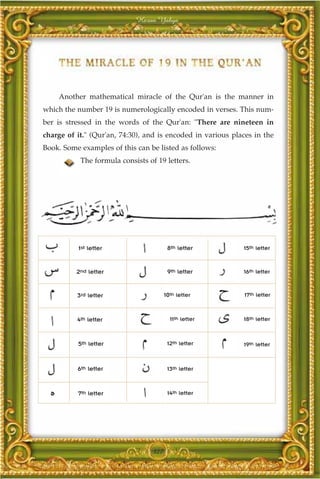 Harun Yahya
THE MIRACLE OF 19 IN THE QUR'AN
Another mathematical miracle of the Qur'an is the manner in
which the number 19 is numerologically encoded in verses. This num-
ber is stressed in the words of the Qur'an: "There are nineteen in
charge of it." (Qur'an, 74:30), and is encoded in various places in the
Book. Some examples of this can be listed as follows:
The formula consists of 19 letters.
بسم الله الرحمن الرحيم
ب 1st letter ا 8th letter ل 15th letter
س 2nd letter ل 9th letter ر 16th letter
م 3rd letter ر 10th letter ح 17th letter
ا 4th letter ح 11th letter ى 18th letter
ل 5th letter م 12th letter م 19th letter
ل 6th letter ن 13th letter
ه 7th letter ا 14th letter